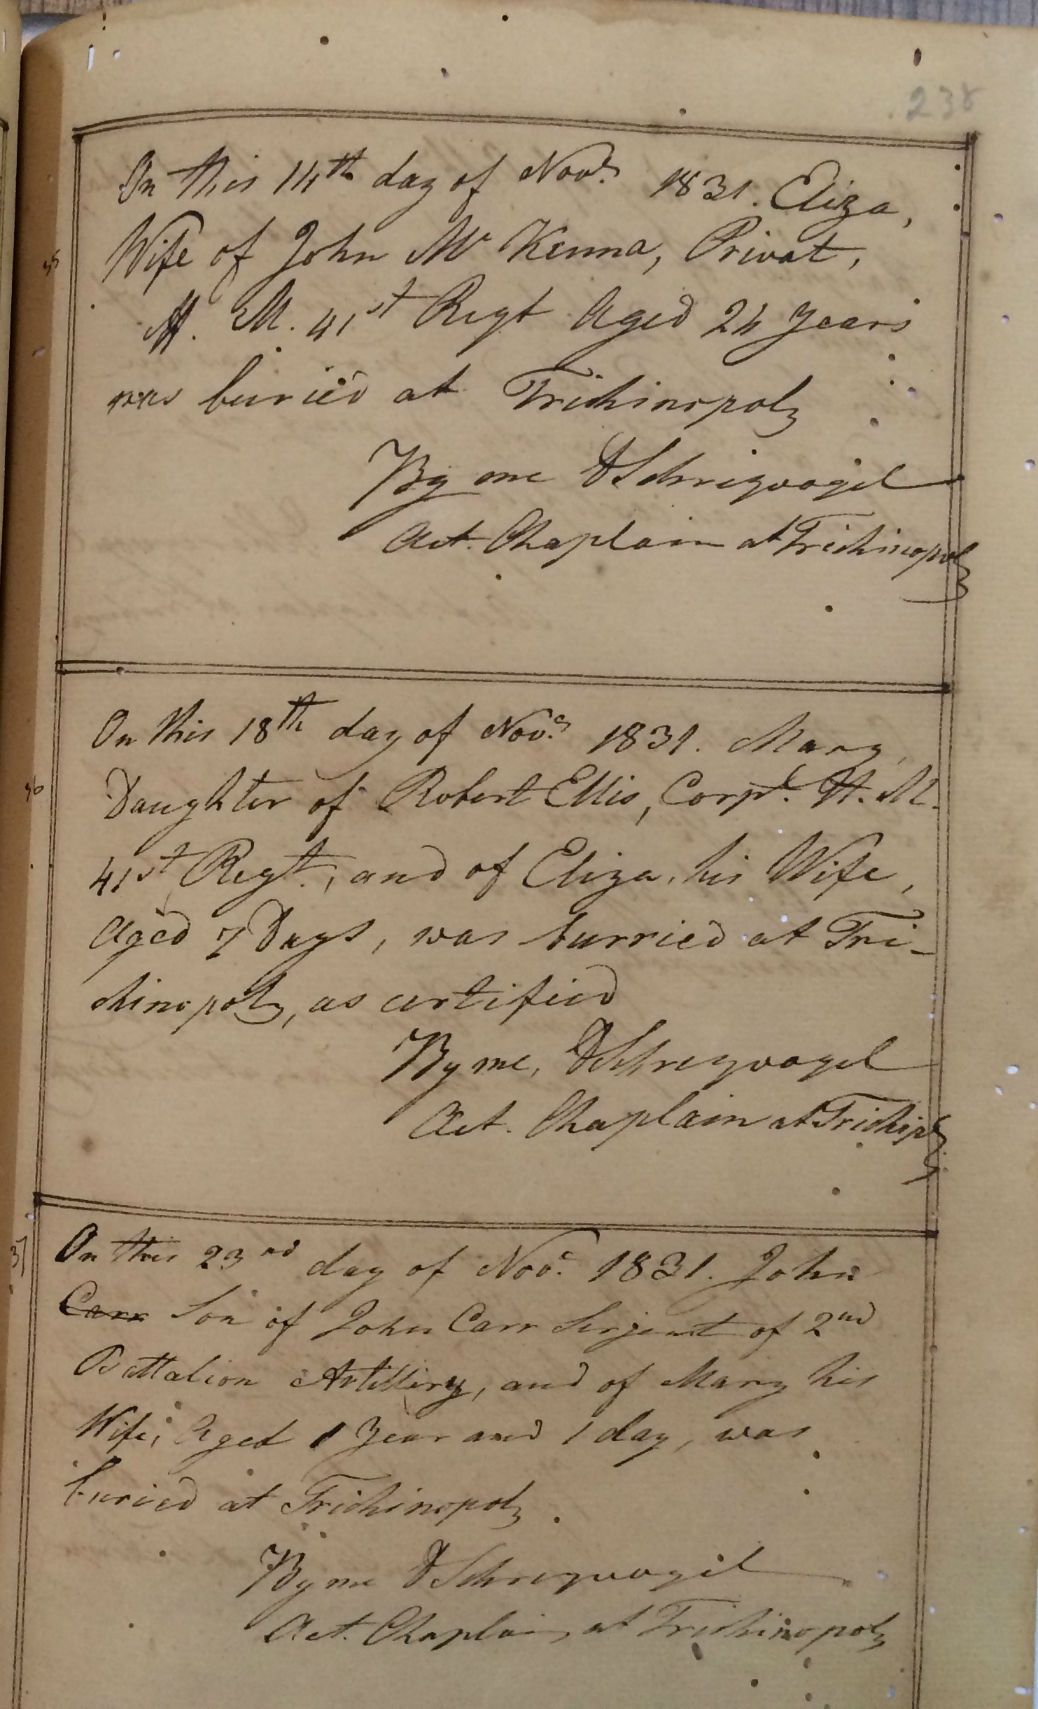 238
On this 14th day of Novr. 1831. Eliza,
Wife of John Mc Kenna, Privat,
H. M. 41st Regt Aged 24 Years
was buried at Trichinopoly
By me D Schreyvogel
Act. Chaplain at Trichinopoly
On this 18th day of Novr. 1831. Mary
36
Daughter of Robert Ellis, Corpl. H. M.
41st Regt., and of Eliza, his Wife,
Aged 7 Days, was burried at Tri-
chinopoly, as certified
By me, D Schreyvogel
Act. Chaplain at Trichiply
37
On this 23rd day of Novr. 1831. John
Carr Son of John Carr Serjent of 2nd
Battalion Artillery, and of Mary his
Wife, Aged 1 Year and 1 day, was
buried at Trichinopoly.
By me D Schreyvogel
Act. Chaplain at Trichinopoly